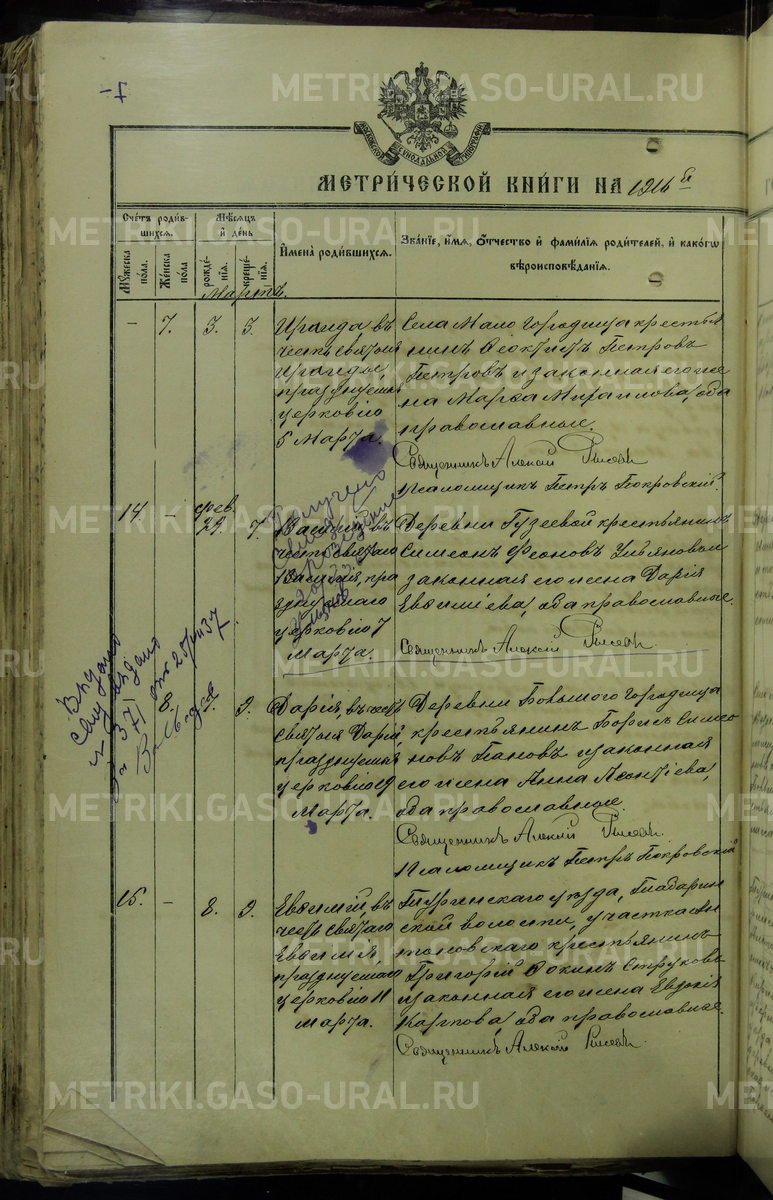 МЕТРИЧЕСКОЙ КНИГИ НА 1916 й
Счетъ родив-
шихся.
Мѣсяцъ
и день
Мужеска
пола.
Женска
пола
рожде-
нія.
креще-
нія.
Имена родившихся.
Званіе, имя, отчество и фамилія родителей, и какогω
вѣроисповѣданія.
Мартъ.
– 7. 3. 5.
Ираида въ
честь святыя
Ираиды,
празднуемыя
церковію
5 Марта.
Села Мало Городища крестья
нинъ Феоктистъ Петровъ
Петровъ и законная его же
на Марѳа Миха лова, оба
православные.
Священникъ Алексій
Псаломщикъ Петръ Покровскій.
14. – фев. 29. 7.
Василій, въ
честь святаго
Василія, пра
зднуемаго
церковію 7
Марта.
Деревни Гузеевой крестьянинъ
Симеонъ Феоновъ Ульяновъ и
законная его жена Дарія
Евѳиміева, оба православные.
Священникъ Алексій
Получено
Выдано
№ 371 от 25/VIII 37
8. 9.
Дарія, въ честь
святыя Даріи,
празднуемыя
церковію 19
Марта.
Деревни Большого Городища
крестьянинъ Борисъ Симео
новъ Пановъ и законная
его жена Анна Леонтіева,
оба православные.
Священникъ Алексій
Псаломщикъ Петръ Покровскій
15. – 8. 9.
Евѳимій, въ
честь святаго
Евѳимія,
празднуемаго
церковію 11
марта.
Туринскаго уѣзда, Гладарин
ской волости, участка Ан
тоновскаго крестьянинъ
Григорій Фокинъ Струковъ
и законная его жена Евдокія
Карпова, оба православные.
Священникъ Алексій
METRIKI.GASO-URAL.RU